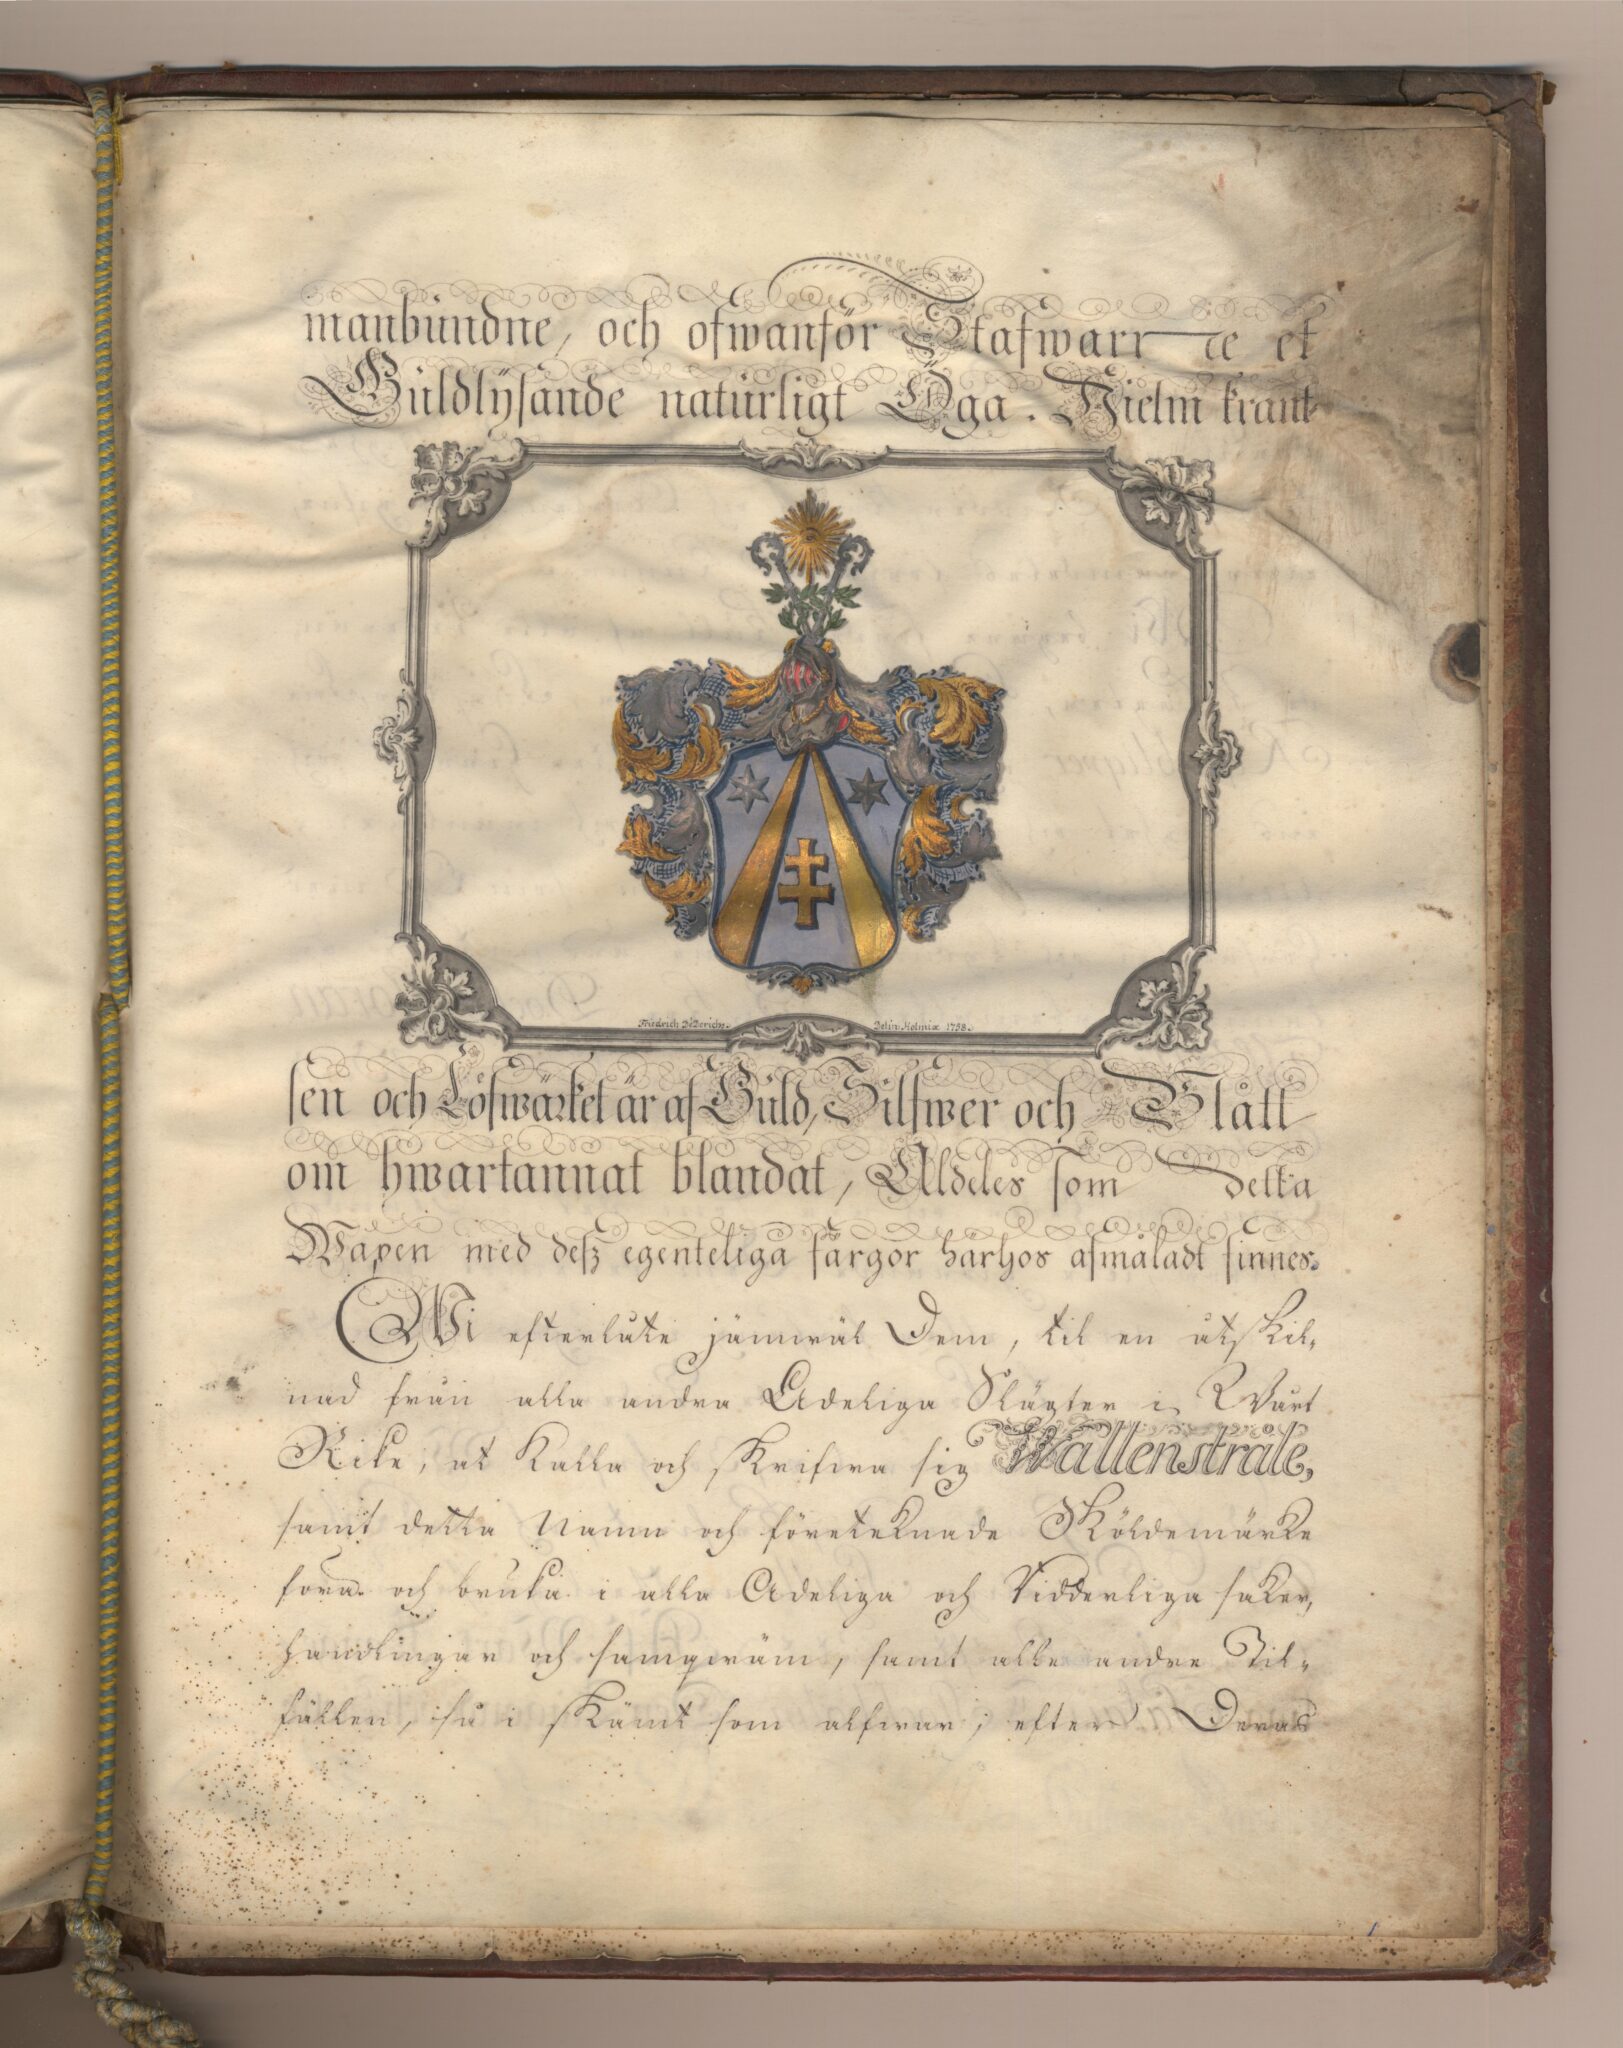 manbundne, och ofwanför Stafwarne et
Guldlysande naturligt Öga. Hielm krant
Friedrich Delin. Holmiæ 1758.
sen och Löfwärket är af Guld, Silfwer och Blått
om hwartannat blandat, Aldeles som detta
Wapen med desz egenteliga färgor härhos afmåladt finnes.
Wi efterlåte jämwäl Dem, til en åtskil-
nad från alla andra Adeliga Slägter i Wårt
Rike, at kalla och skrifwa sig Wallenstråle,
samt detta Namn och företeknade Sköldemärke
föra och bruka i alla Adeliga och Ridderliga saker,
handlingar och samqwäm, samt alle andre Til-
fällen, så i skämt som alfwar; efter Deras